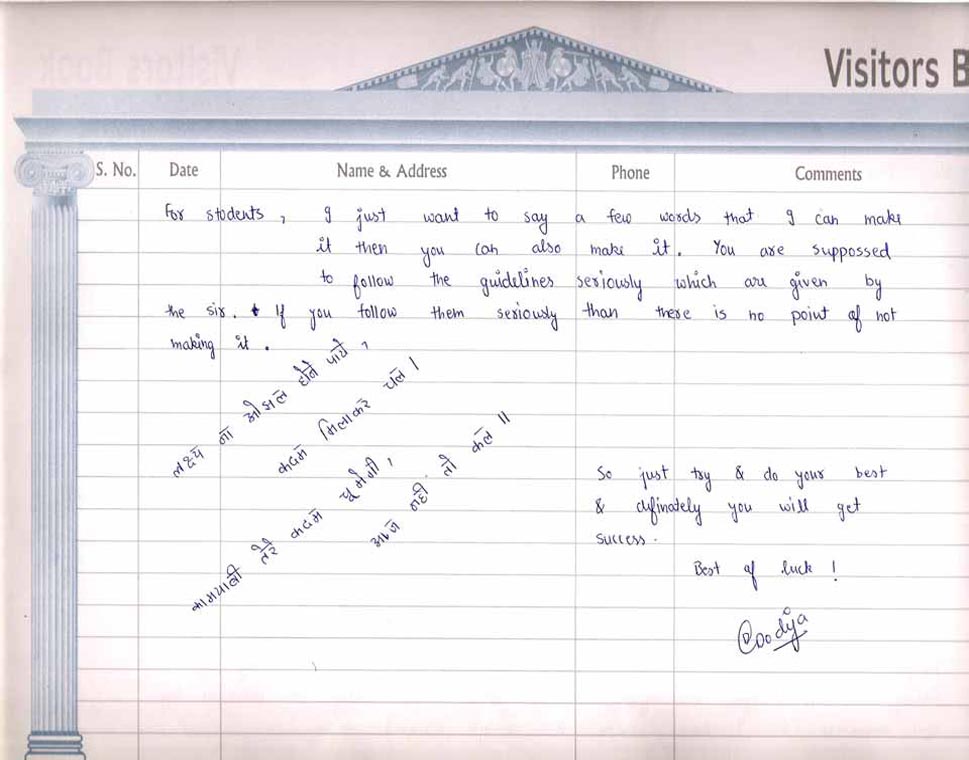 Visitors B
S. No. Date Name & Address Phone Comments
For students, I just want to say a few words that I can make
it then you can also make it. You are suppossed
to follow the guidelines seriously which are given by
the sir. If you follow them seriously than there is no point of not
making it.
लक्ष्य ना ओझल होने पाये,
कदम मिलाकर चल।
कामयाबी तेरे कदम चूमेगी,
आज नही तो कल॥
So just try & do your best
& definately you will get
success.
Best of luck!